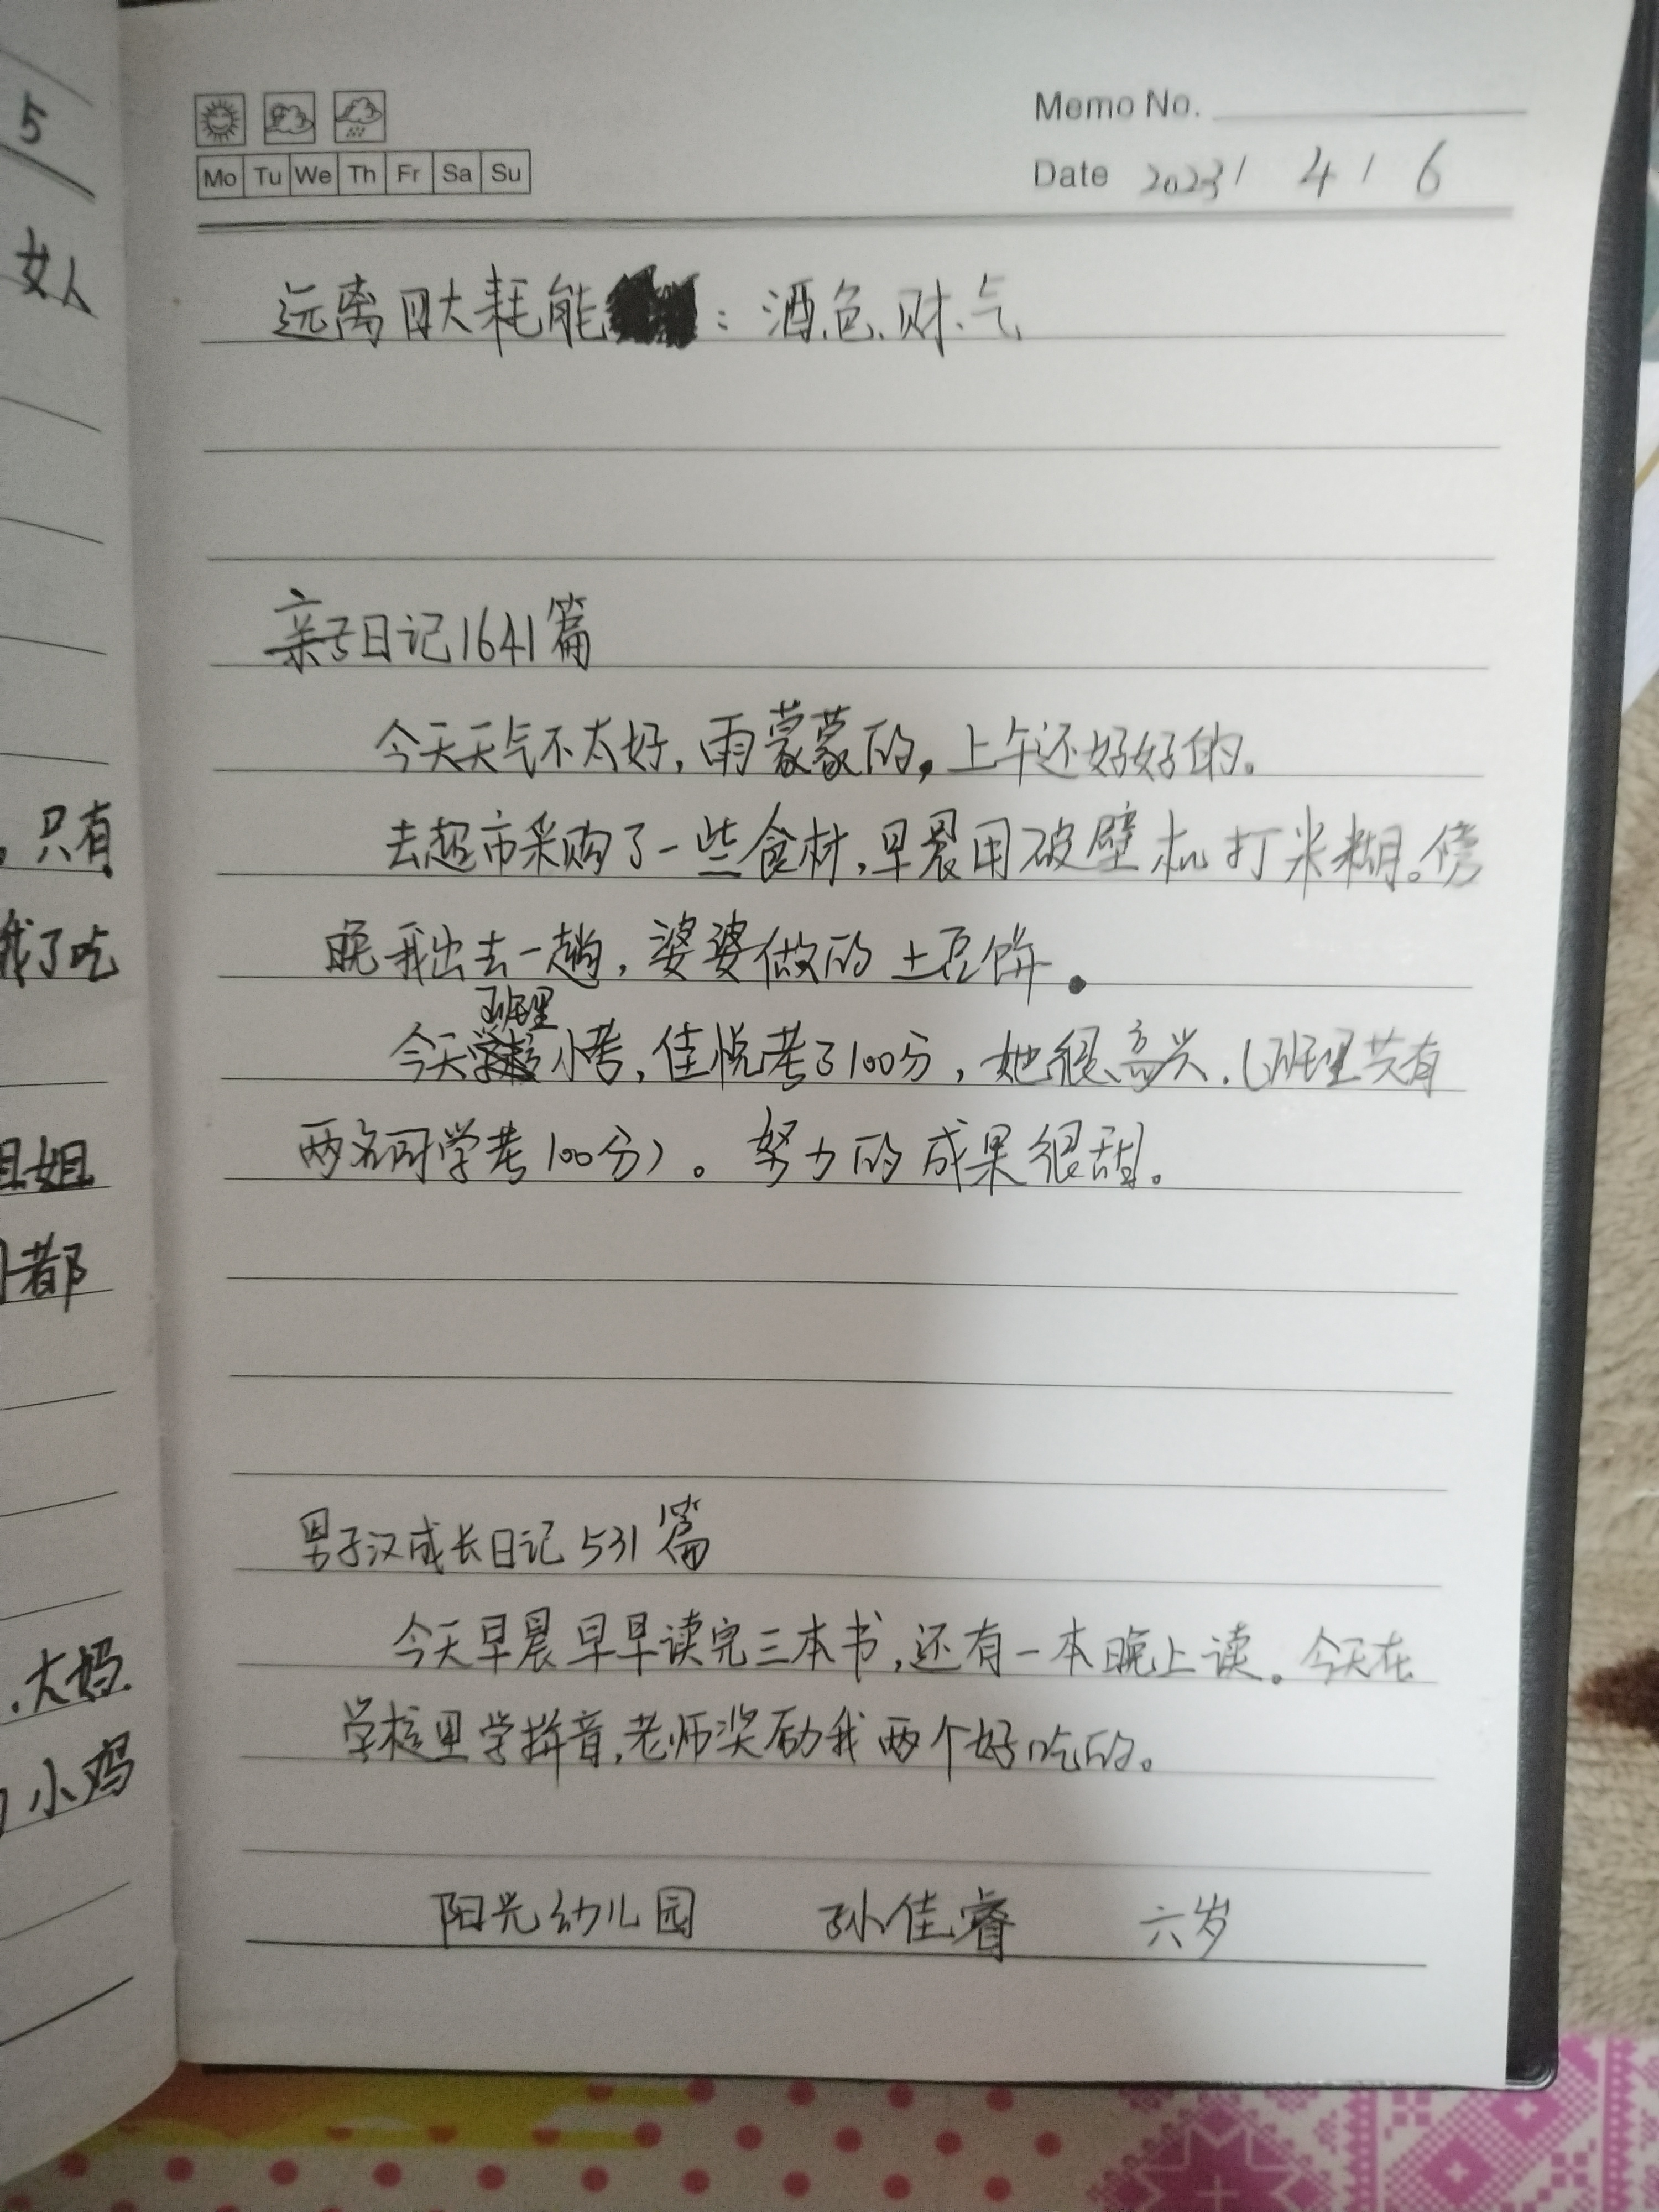 5
女人
只有
我了吃
姐姐
都
.大妈.
小鸡
Mo Tu We Th Fr Sa Su
Memo No.
Date 2023 / 4 / 6
远离四大耗能 : 酒、色、财、气
亲子日记1641篇
今天天气不太好,雨蒙蒙的,上午还好好的。
去超市采购了一些食材,早晨用破壁机打米糊。傍
晚我出去一趟,婆婆做的土豆饼.
班里
今天小考,佳悦考了100分,她很高兴.(班里共有
两名同学考100分)。努力的成果很甜。
男子汉成长日记531篇
今天早晨早早读完三本书,还有一本晚上读。今天在
学校里学拼音,老师奖励我两个好吃的。
阳光幼儿园 孙佳睿 六岁